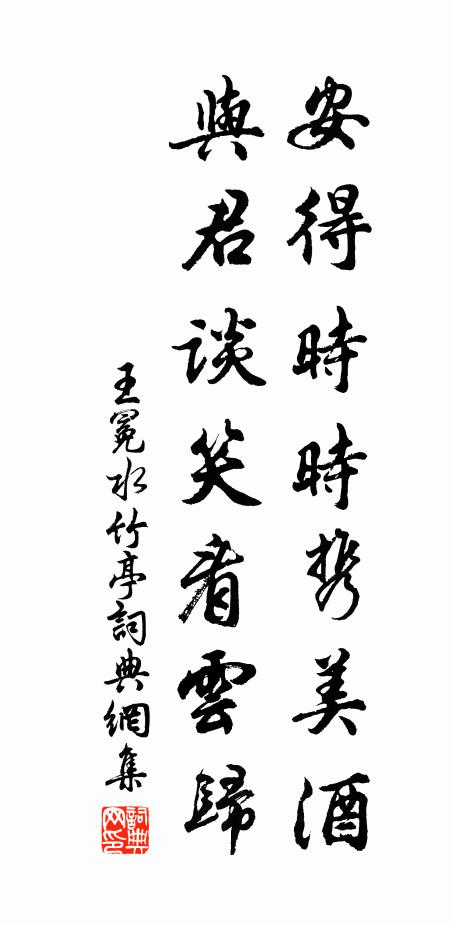 安得時時携美酒
與君談笑看雲歸
王冕水竹亭詞典網集
詞典网印